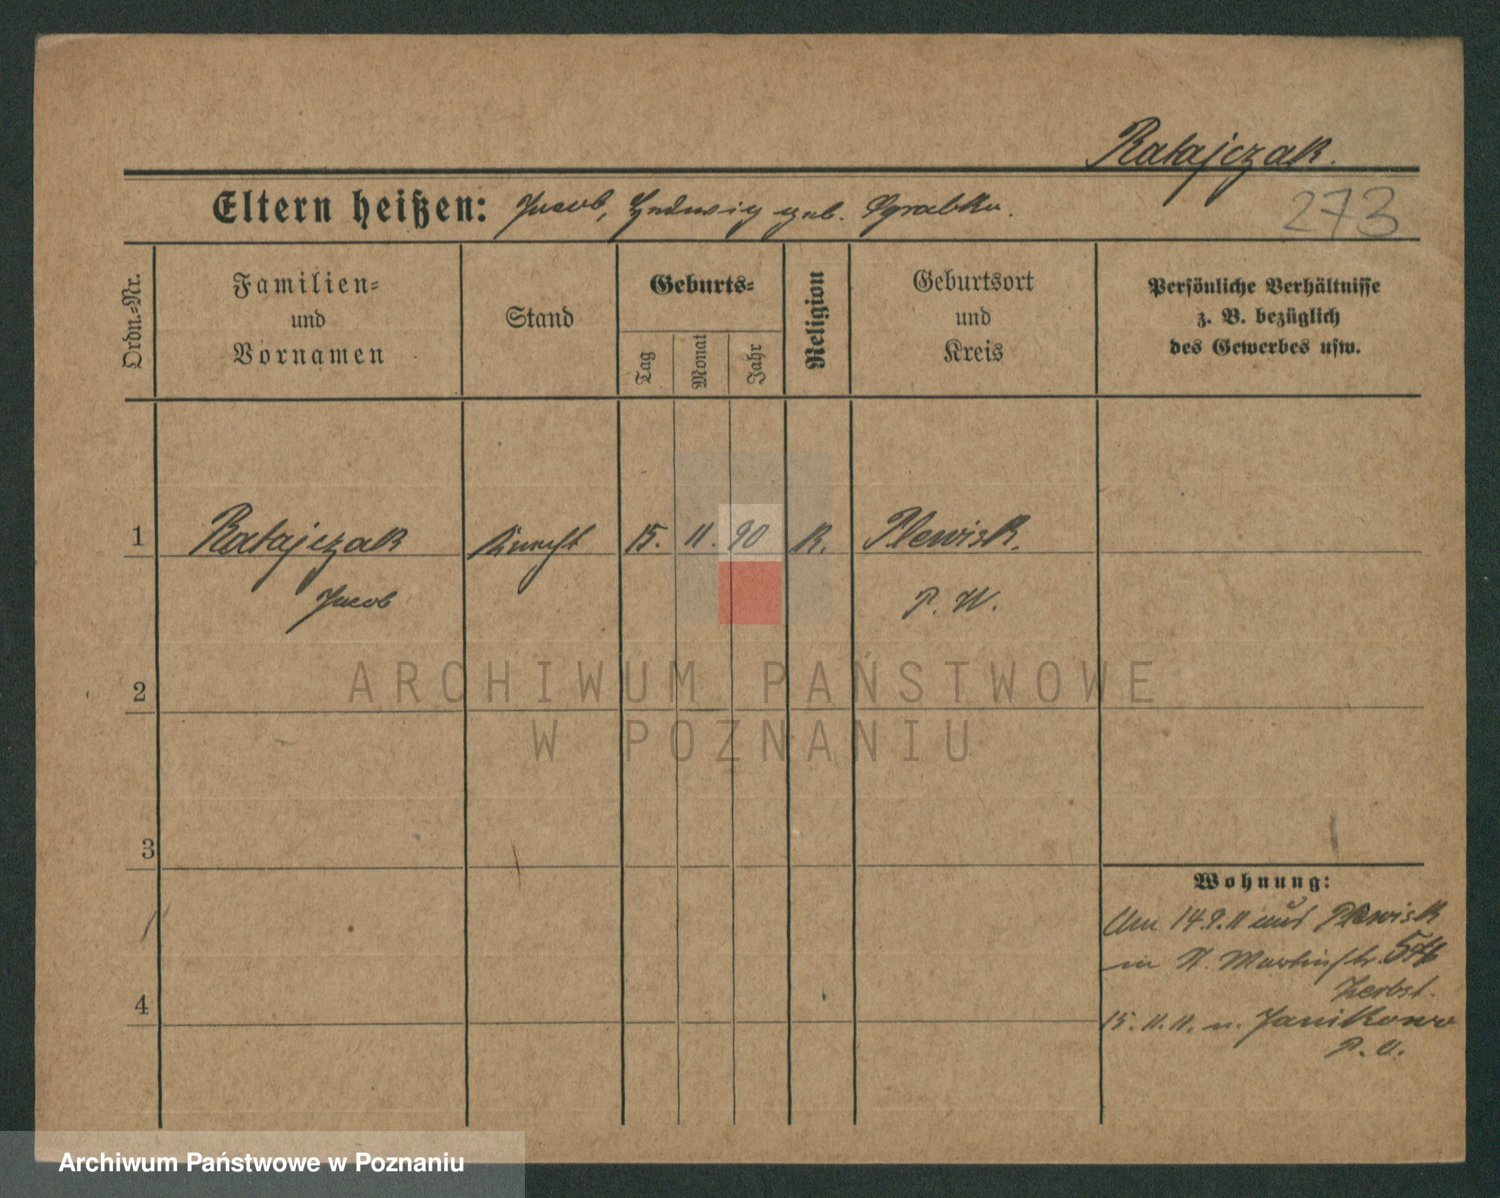 Ratajczak.
Eltern heißen: Jacob, Hedwig geb. Sgrabka.
273
Ordn.-Nr.
Familien-
und
Vornamen
Stand
Geburts-
Tag
Monat
Jahr
Religion
Geburtsort
und
Kreis
Persönliche Verhältnisse
z. B. bezüglich
des Gewerbes usw.
1 Ratajczak Knecht 15. 11. 90 K. Plewisk.
Jacob P. W.
2
ARCHIWUM PAŃSTWOWE
W POZNANIU
3
Wohnung:
Am 14.9.11 aus Plewisk
in St. Martinstr.
Herbst.
4
15. 11. 11. n. Janikowo
P. O.
Archiwum Państwowe w Poznaniu